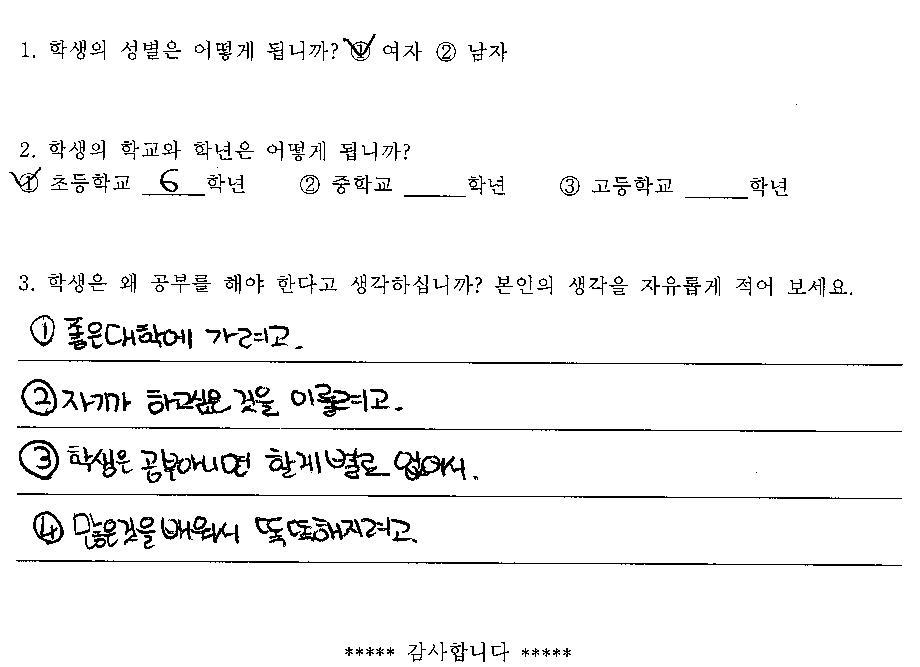 1. 학생의 성별은 어떻게 됩니까? ① 여자 ② 남자
2. 학생의 학교와 학년은 어떻게 됩니까?
① 초등학교 6 학년 ② 중학교 _____ 학년 ③ 고등학교 _____ 학년
3. 학생은 왜 공부를 해야 한다고 생각하십니까? 본인의 생각을 자유롭게 적어 보세요.
① 좋은대학에 가려고.
② 자기가 하고싶은 것을 이룰려고.
③ 학생은 공부아니면 할게 별로 없어서.
④ 많은것을 배워서 똑똑해지려고.
***** 감사합니다 *****